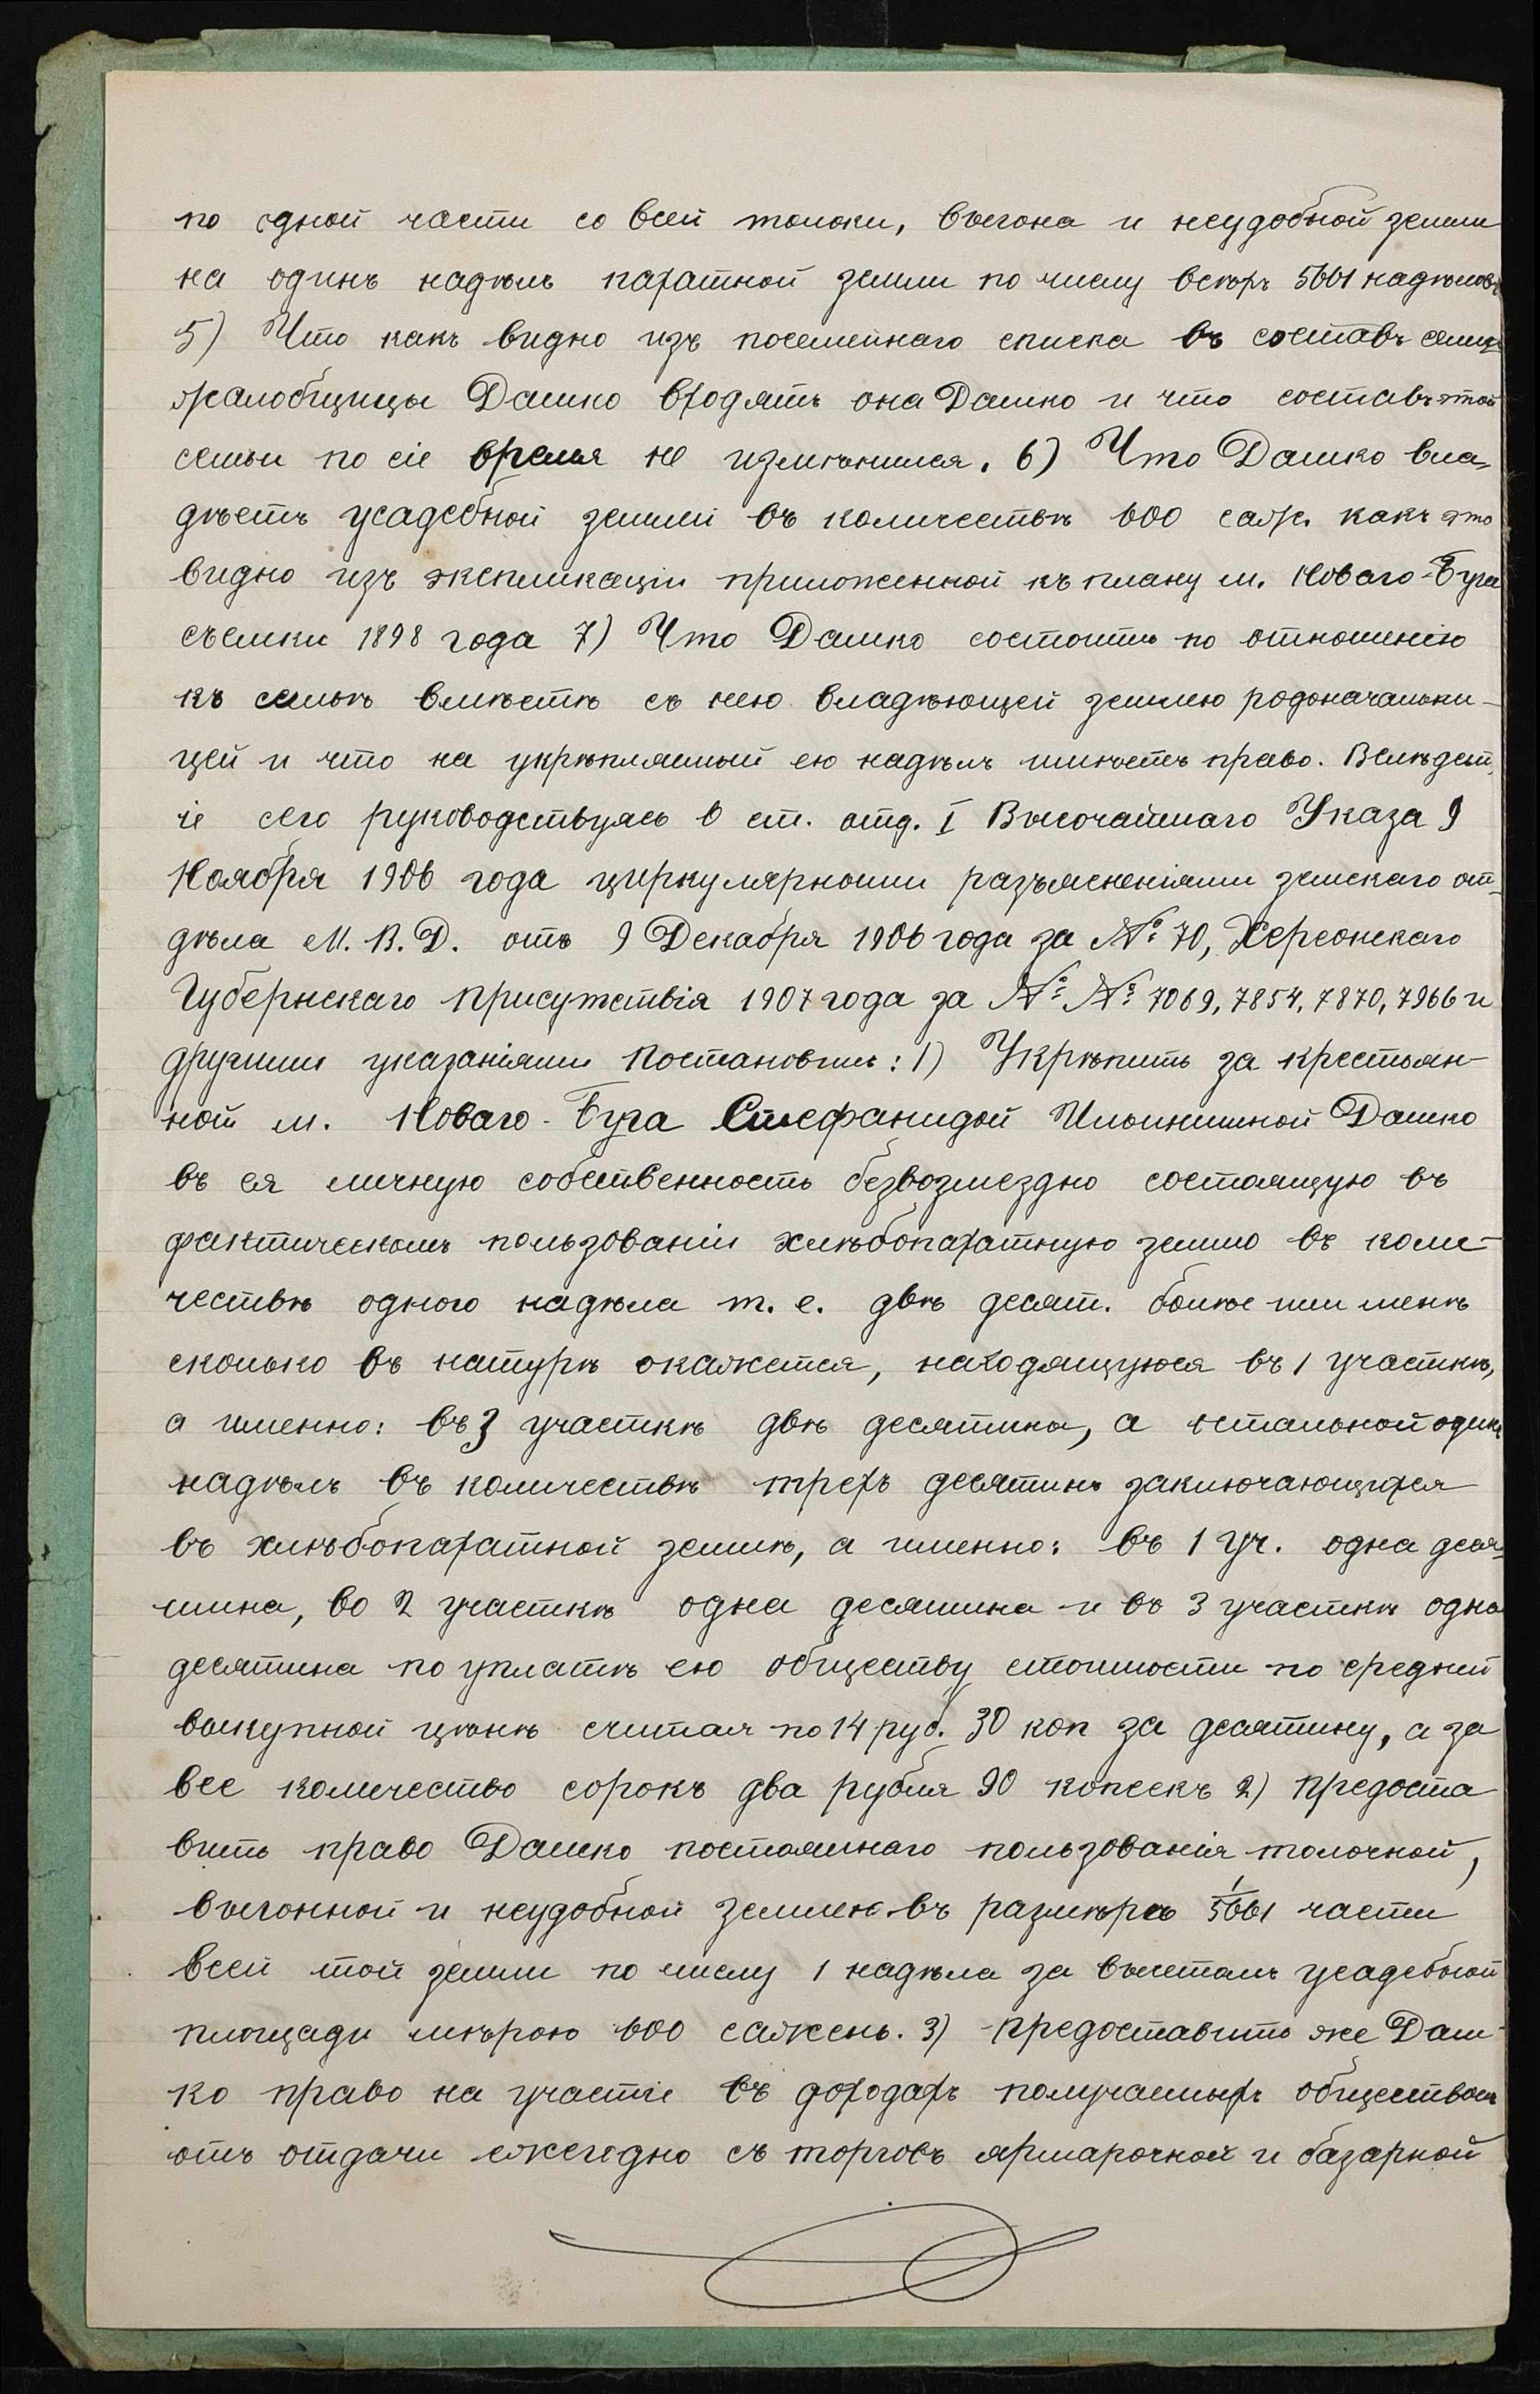 по одной части со всей толоки, выгона и неудобной земли
на одинъ надѣлъ пахатной земли по числу всѣхъ 5661 надѣловъ
5) Что какъ видно изъ посемейнаго списка въ составъ семьи
жалобщицы Дашко входятъ она Дашко и что составъ этой
семьи по сіе время не измѣнился. 6) Что Дашко вла-
дѣетъ усадебной землей въ количествѣ 600 саж. какъ это
видно изъ экспликаціи приложенной къ плану м. Новаго-Буга
съемки 1898 года 7) Что Дашко состоитъ по отношенію
къ семьѣ вмѣстѣ съ нею владѣющей землею родоначальни-
цей и что на укрѣпляемый ею надѣлъ имѣетъ право. Вслѣдств
іе сего руководствуясь 6 ст. отд. I Высочайшаго Указа 9
Ноября 1906 года циркулярными разъясненіями земскаго от-
дѣла М. В. Д. отъ 9 Декабря 1906 года за № 70, Херсонскаго
Губернскаго Присутствія 1907 года за № № 7069, 7854, 7870, 7966 и
другими указаніями Постановилъ: 1) Укрѣпить за крестьян-
ной м. Новаго-Буга Стефанидой Ильинишной Дашко
въ ея личную собственность безвозмездно состоящую въ
фактическомъ пользованіи хлѣбопахатную землю въ коли-
чествѣ одного надѣла т. е. двѣ десят. болѣе или менѣ
сколько въ натурѣ окажется, находящуюся въ 1 участкѣ,
а именно: въ 3 участкѣ двѣ десятины, а остальной одинъ
надѣлъ въ количествѣ трехъ десятинъ заключающихся
въ хлѣбопахатной землѣ, а именно: въ 1 уч. одна деся-
тина, во 2 участкѣ одна десятина и въ 3 участкѣ одна
десятина по уплатѣ ею обществу стоимости по средней
выкупной цѣнѣ считая по 14 руб. 30 коп за десятину, а за
все количество сорокъ два рубля 90 копеекъ 2) Предоста
вить право Дашко постояннаго пользованія толочной,
выгонной и неудобной землею въ размѣрѣ 1/5661 части
всей той земли по числу 1 надѣла за вычетомъ усадебной
площади мѣрою 600 сажень. 3) Предоставить же Даш-
ко право на участіе въ доходахъ получаемыхъ обществомъ
отъ отдачи ежегодно съ торговъ ярмарочной и базарной